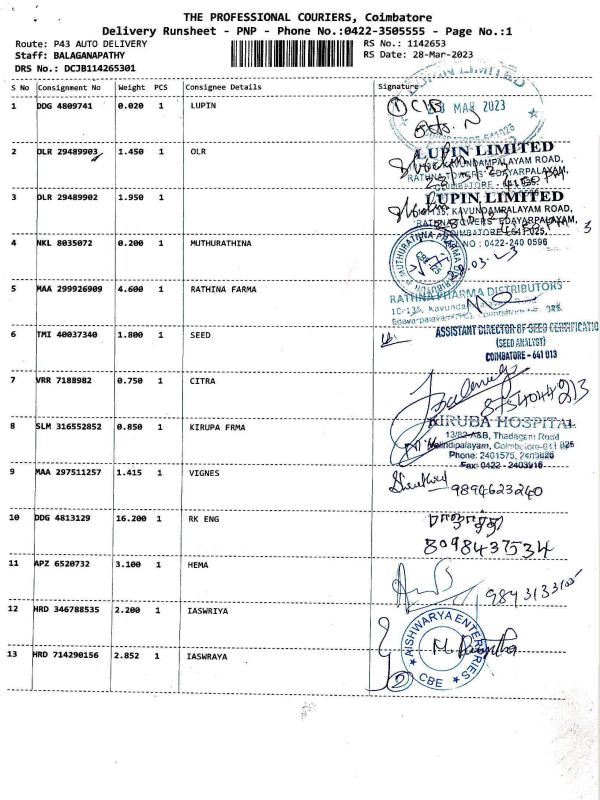 THE PROFESSIONAL COURIERS, Coimbatore
Delivery Runsheet - PNP - Phone No.:0422-3505555 - Page No.:1
Route: P43 AUTO DELIVERY
RS No.: 1142653
Staff: BALAGANAPATHY
RS Date: 28-Mar-2023
DRS No.: DCJB114265301
S No Consignment No Weight PCS Consignee Details Signature
1 DDG 4809741 0.020 1 LUPIN
MAR 2023
2 OLR 29489903 1.450 1 OLR
LUPIN LIMITED
KAVUNDAMPALAYAM ROAD,
RATHNA TOWERS EDAYARPALAYAM,
COIMBATORE - 641 025.
3 OLR 29489902 1.950 1
LUPIN LIMITED
KAVUNDAMPALAYAM ROAD,
RATHNA TOWERS EDAYARPALAYAM,
COIMBATORE 641 025,
NO : 0422-240 0596
4 NKL 8035072 0.200 1 MUTHURATHINA
MUTHURATHNA PHARMA DISTRIBUTORS
CBE-25
5 MAA 299926909 4.600 1 RATHINA FARMA
RATHNA PHARMA DISTRIBUTORS
6 TMI 40037340 1.800 1 SEED
ASSISTANT DIRECTOR OF SEED CERTIFICATIO
(SEED ANALYST)
COIMBATORE - 641 013
7 VRR 7188982 0.750 1 CITRA
8754044213
8 SLM 316552852 0.850 1 KIRUPA FRMA
KIRUBA HOSPITAL
13/82 A&B, Thadagam Road
Phone: 2401575, 2403826
Fax: 0422 - 2403916
9 MAA 297511257 1.415 1 VIGNES
9894623240
10 DDG 4813129 16.200 1 RK ENG
8098437534
11 APZ 6520732 3.100 1 HEMA
12 HRD 346788535 2.200 1 IASWRIYA
AISHWARYA ENTERPRISES
CBE
13 HRD 714290156 2.852 1 IASWRAYA
2